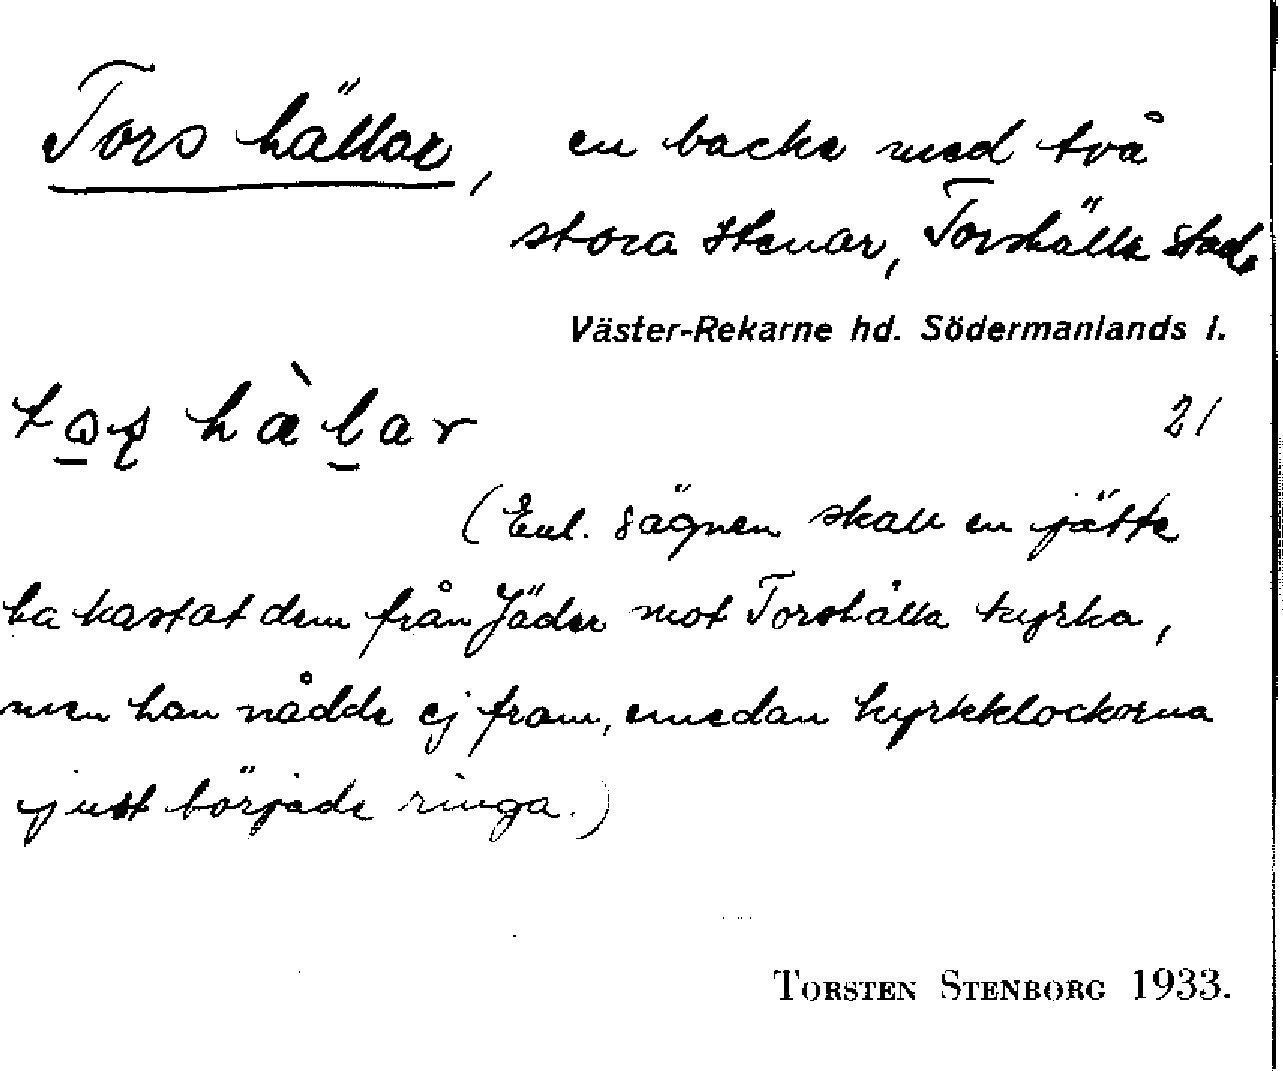 Tors hällar, en backe med två
stora stenar, Torshälla stad,
Väster-Rekarne hd. Södermanlands l.
hà̀lar 21
(Enl. sägnen skall en jätte
ha kastat dem från Jäder mot Torshälla kyrka,
men han nådde ej fram, emedan kyrkklockorna
just började ringa.)
TORSTEN STENBORG 1933.